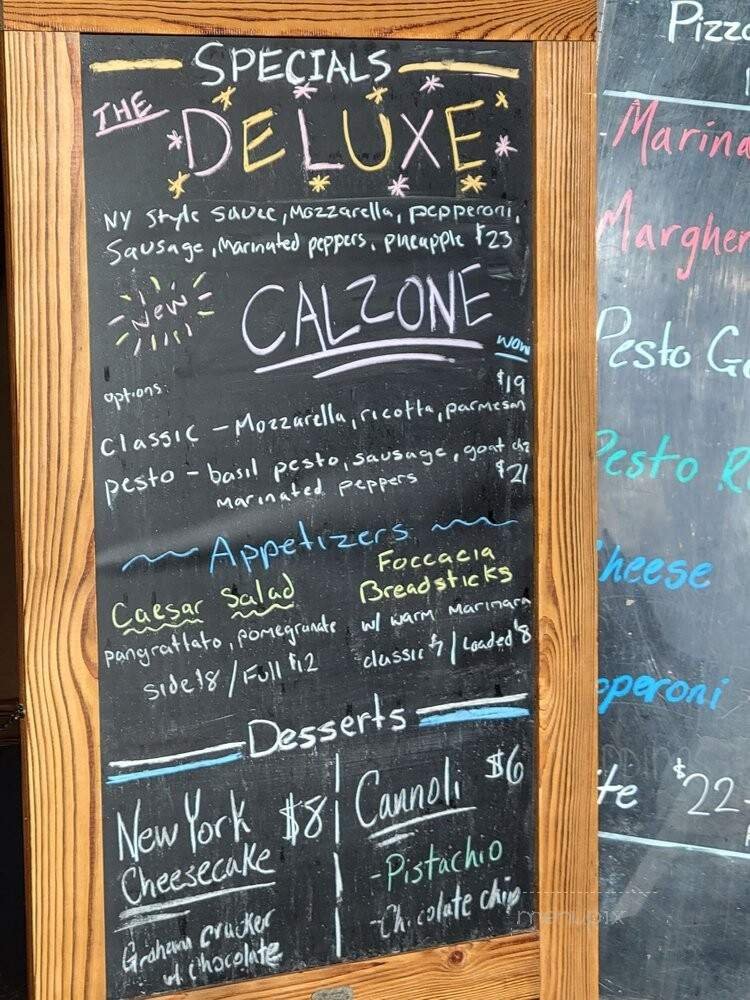 SPECIALS
THE DELUXE
NY Style Sauce, Mozzarella, pepperoni,
Sausage, Marinated peppers, pineapple $23
New CALZONE
WOW
options:
$19
Classic - Mozzarella, ricotta, parmesan
pesto - basil pesto, sausage, goat chz
Marinated Peppers $21
Appetizers
Caesar Salad
pangrattato, pomegranate
side $8 / Full $12
Foccacia
Breadsticks
w/ warm Marinara
classic $7 / Loaded $8
Desserts
New York $8
Cheesecake
Graham cracker
w/ chocolate
Cannoli $6
-Pistachio
-Chocolate chip
menupix
Pizz
Marina
Margher
Pesto G
Pesto R
heese
pperoni
te $22